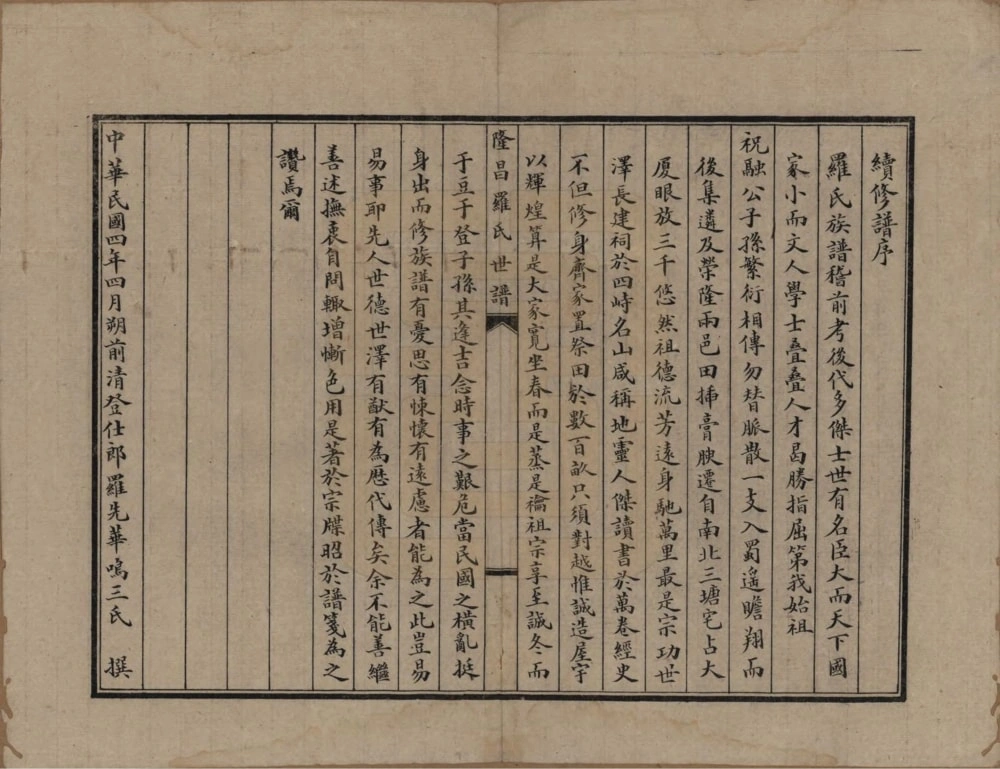 續修譜序
羅氏族譜稽前考後代多傑士世有名臣大而天下國
家小而文人學士疊疊人才曷勝指屈第我始祖
祝融公子孫繁衍相傳勿替脈散一支入蜀遙瞻翔而
後集遴及榮隆兩邑田揷膏腴遷自南北三塘宅占大
厦眼放三千悠然祖德流芳遠身馳萬里最是宗功世
澤長建祠於四峙名山咸稱地靈人傑讀書於萬卷經史
不但修身齊家置祭田於數百畝只須對越惟誠造屋宇
以輝煌算是大家寬坐春而是蒸是禴祖宗享至誠冬而
隆昌羅氏世譜
于豆于登子孫其逢吉念時事之艱危當民國之橫亂挺
身出而修族譜有憂思有悚懷有遠慮者能為之此豈易
易事耶先人世德世澤有猷有為歷代傳矣余不能善繼
善述撫衷自問輙增慚色用是著於宗牒昭於譜箋為之
讚焉爾
中華民國四年四月朔前清登仕郎羅先華鳴三氏 撰